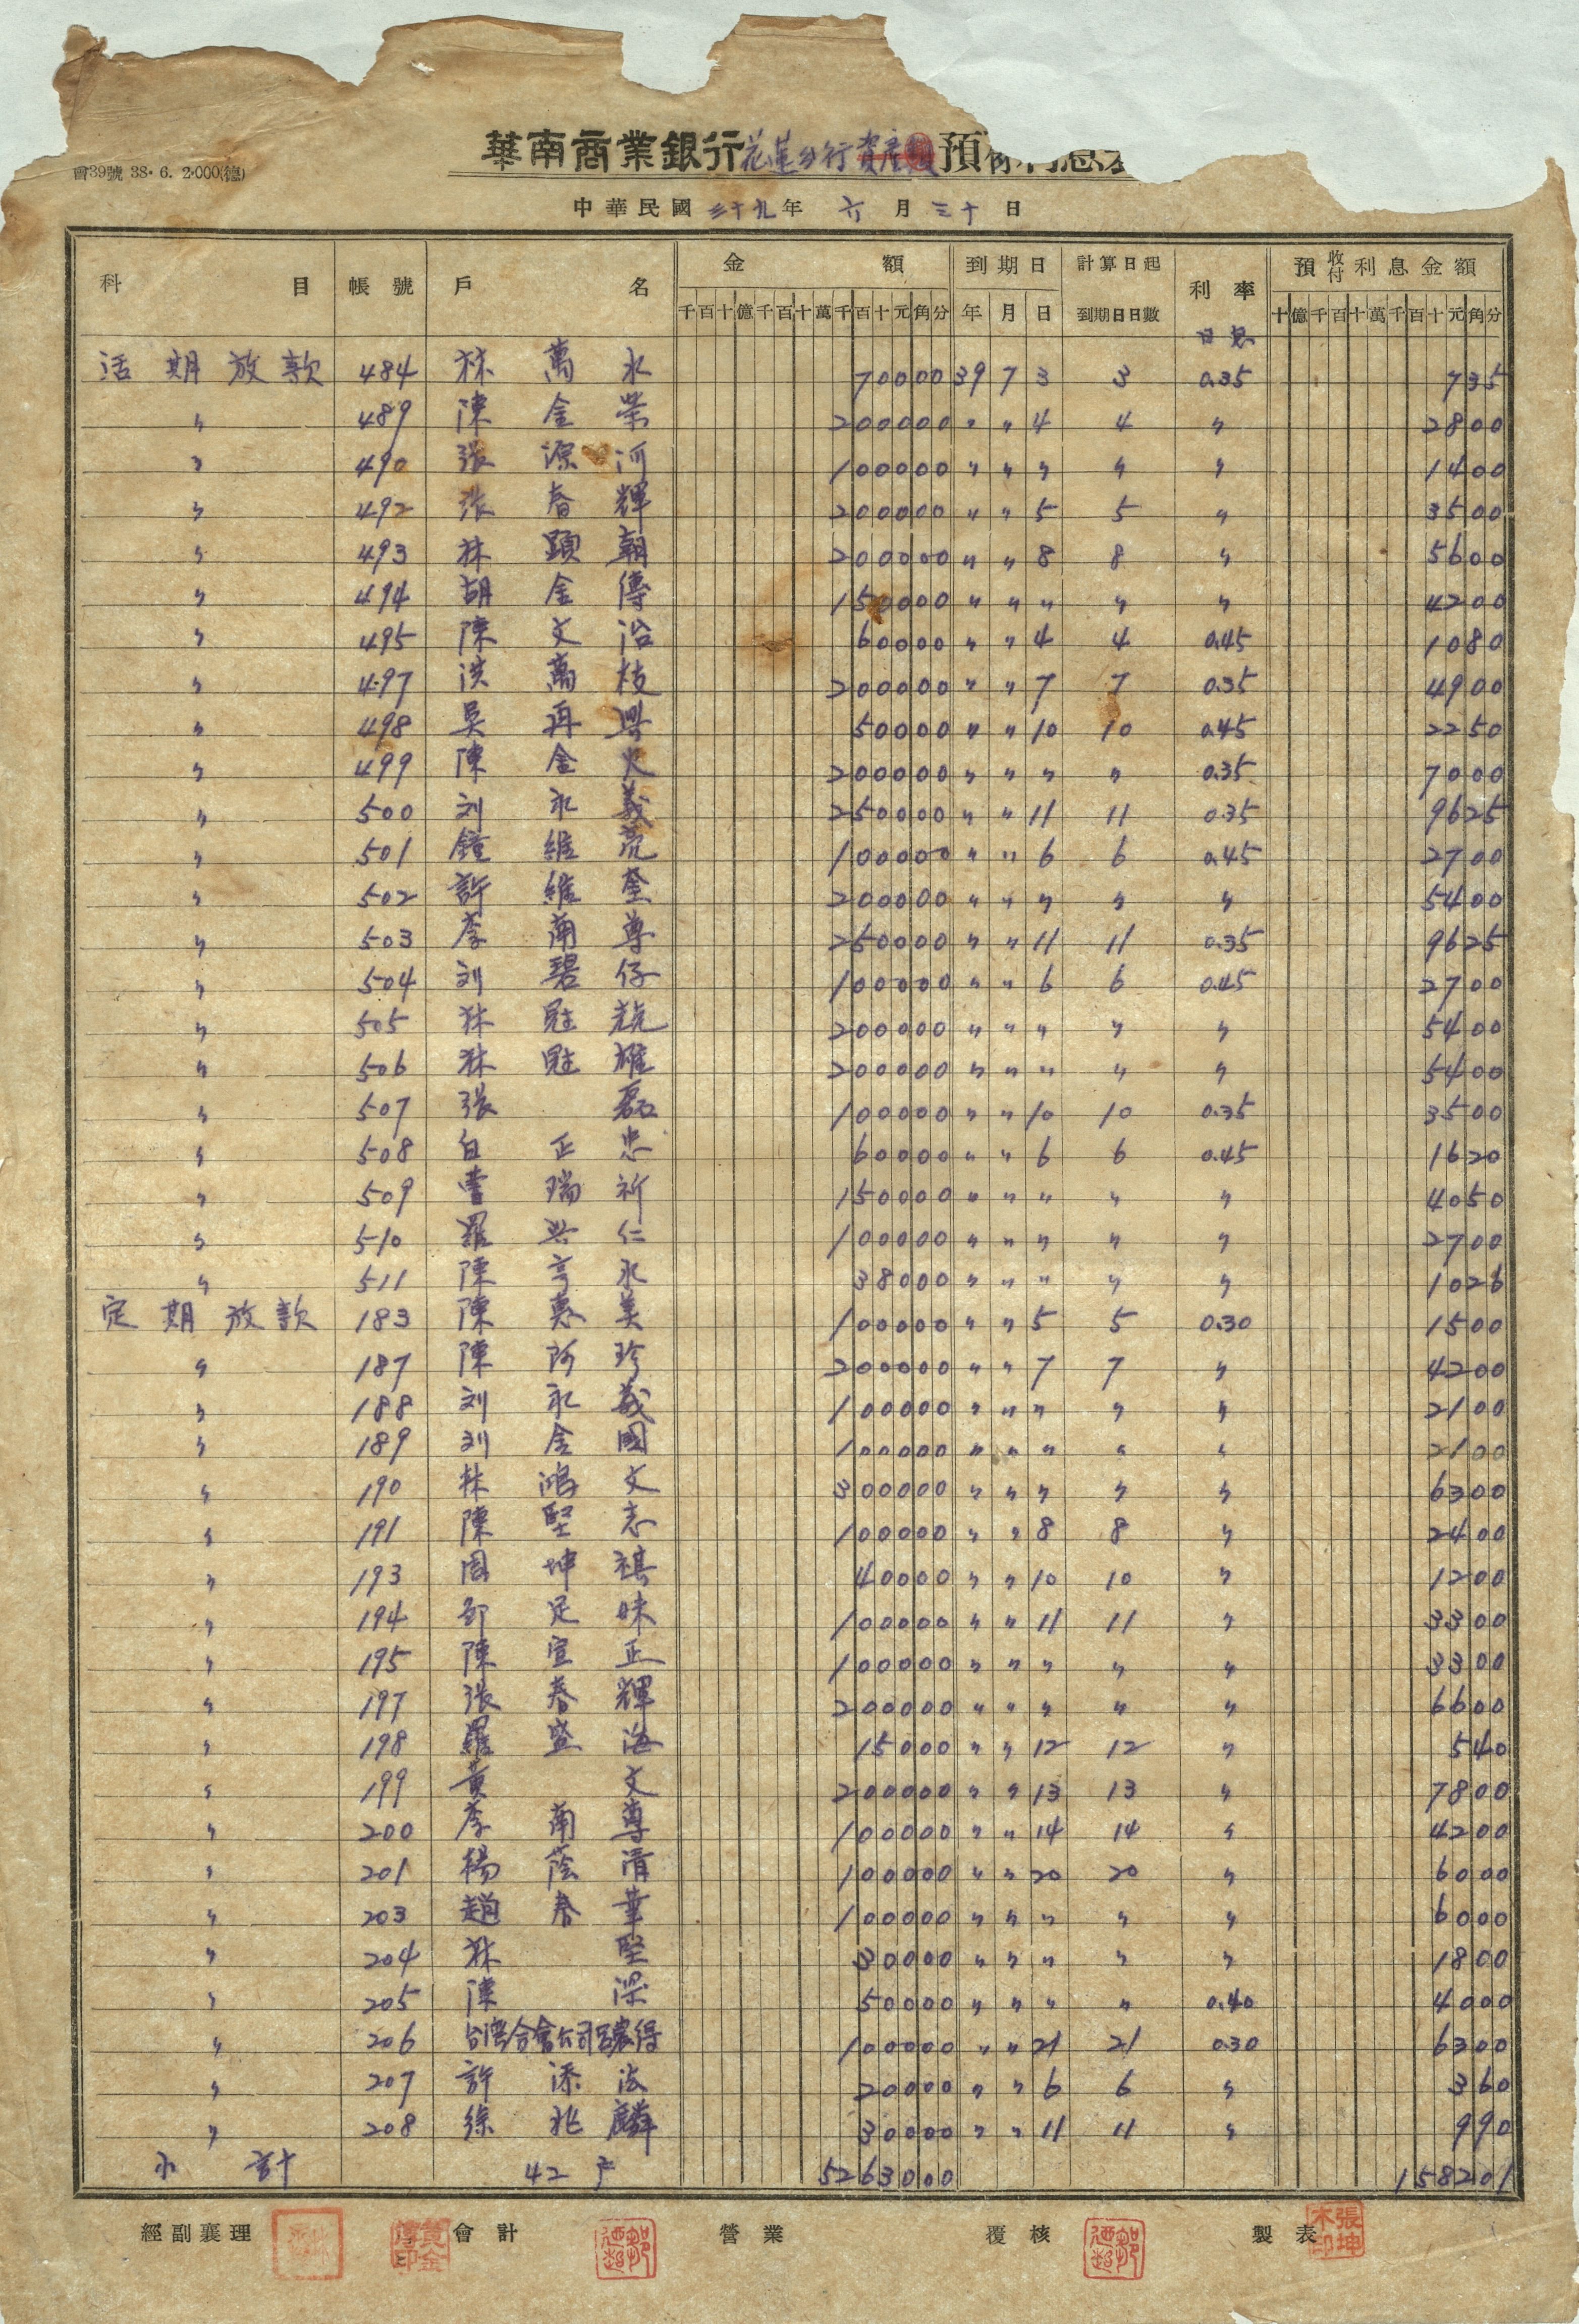 華南商業銀行花蓮分行資產 預
會39號 38.6.2.000(總)
中華民國 三十九 年 六 月 三十 日
科目 帳號 戶名 金額 到期日 計算日起 利率 預收付利息金額
千百十億千百十萬千百十元角分 年 月 日 到期日日數 十億千百十萬千百十元角分
日息
活期放款 484 林萬永 70000 39 7 3 3 0.35 735
〃 489 陳金榮 200000 〃 〃 4 4 〃 2800
〃 490 張源河 100000 〃 〃 〃 〃 〃 1400
〃 492 張春輝 200000 〃 〃 5 5 〃 3500
〃 493 林顕朝 200000 〃 〃 8 8 〃 5600
〃 494 胡金傳 150000 〃 〃 〃 〃 〃 4200
〃 495 陳文沿 60000 〃 〃 4 4 0.45 1080
〃 497 洪萬枝 200000 〃 〃 7 7 0.35 4900
〃 498 吳再興 50000 〃 〃 10 10 0.45 2250
〃 499 陳金火 200000 〃 〃 〃 〃 0.35 7000
〃 500 刘永義 250000 〃 〃 11 11 0.35 9625
〃 501 鐘維亮 100000 〃 〃 6 6 0.45 2700
〃 502 許維奎 200000 〃 〃 〃 〃 〃 5400
〃 503 李蘭尊 250000 〃 〃 11 11 0.35 9625
〃 504 刘碧仔 100000 〃 〃 6 6 0.45 2700
〃 505 林冠 200000 〃 〃 〃 〃 〃 5400
〃 506 林冠雄 200000 〃 〃 〃 〃 〃 5400
〃 507 張磊 100000 〃 〃 10 10 0.35 3500
〃 508 白正忠 60000 〃 〃 6 6 0.45 1620
〃 509 瑞祈 150000 〃 〃 〃 〃 〃 4050
〃 510 羅興仁 100000 〃 〃 〃 〃 〃 2700
〃 511 陳亨永 38000 〃 〃 〃 〃 〃 1026
定期放款 183 陳惠美 100000 〃 〃 5 5 0.30 1500
〃 187 陳阿珍 200000 〃 〃 7 7 〃 4200
〃 188 刘永義 100000 〃 〃 〃 〃 〃 2100
〃 189 刘金國 100000 〃 〃 〃 〃 〃 2100
〃 190 林鴻文 300000 〃 〃 〃 〃 〃 6300
〃 191 陳堅志 100000 〃 〃 8 8 〃 2400
〃 193 周坤祺 40000 〃 〃 10 10 〃 1200
〃 194 邱足妹 100000 〃 〃 11 11 〃 3300
〃 195 陳宣正 100000 〃 〃 〃 〃 〃 3300
〃 197 張春輝 200000 〃 〃 〃 〃 〃 6600
〃 198 羅登海 15000 〃 〃 12 12 〃 540
〃 199 黃文 200000 〃 〃 13 13 〃 7800
〃 200 李蘭尊 100000 〃 〃 14 14 〃 4200
〃 201 楊蔭清 100000 〃 〃 20 20 〃 6000
〃 203 趙春華 100000 〃 〃 〃 〃 〃 6000
〃 204 林堅 30000 〃 〃 〃 〃 〃 1800
〃 205 陳深 50000 〃 〃 〃 〃 0.40 4000
〃 206 台湾合會公司 100000 〃 〃 21 21 0.30 6300
〃 207 許添法 20000 〃 〃 6 6 〃 360
〃 208 徐兆麟 30000 〃 〃 11 11 〃 990
小計 42戶 5263000 158201
經副襄理 會計 營業 覆核 製表
黃金
郭
郭
張坤木印